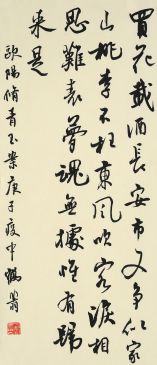 買花載酒長安市又爭似家
山桃李不枉東風吹客淚相
思難表夢魂無據惟有歸
來是
歐陽脩青玉案庚子夏中